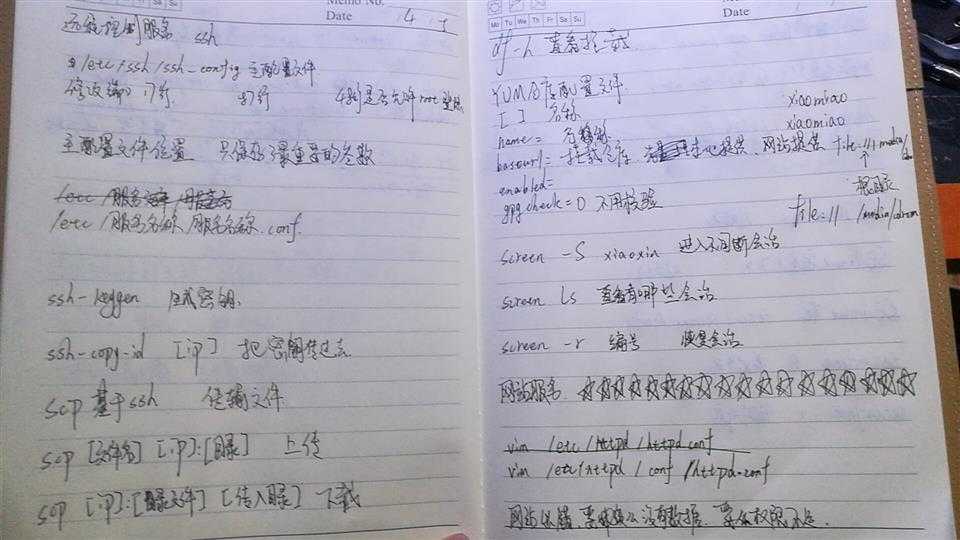 Memo No.
Date 4 5
远程管理服务 ssh
/etc/ssh/ssh_config 主配置文件
修改端口 17行 37行 48行是否允许root登陆
主配置文件位置 只保存了最重要的参数
/etc/服务名称/服务名称.conf
ssh-keygen 生成密钥
ssh-copy-id [ip] 把密钥传过去
scp 基于ssh 传输文件
scp [文件名] [ip]:[目录] 上传
scp [ip]:[目录文件] [传入目录] 下载
Mo Tu We Th Fr Sa Su
Memo No.
Date
df -h 查看挂载
YUM仓库配置文件
[ ] 名称
xiaomiao
xiaomiao
name= 名称
baseurl= 挂载仓库 本地提供、网站提供 file:///media/
enabled=
根目录
gpgcheck=0 不用校验
file:// /media/cdrom
screen -S xiaoxin 进入不间断会话
screen ls 查看有哪些会话
screen -r 编号 恢复会话
网站服务 ☆☆☆☆☆☆☆☆☆☆☆☆☆☆☆☆☆☆☆
vim /etc/httpd/httpd.conf
vim /etc/httpd/conf/httpd.conf
网站 没有数据、要么权限不足.